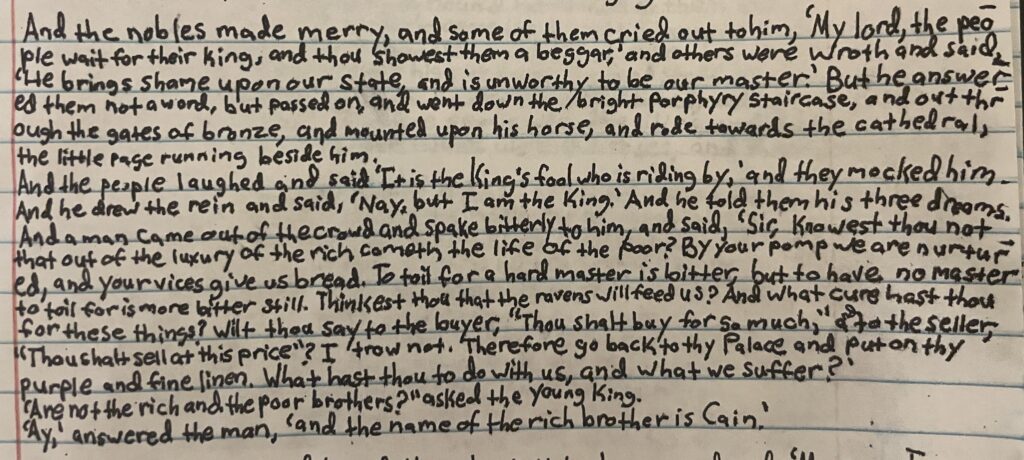 And the nobles made merry, and some of them cried out to him, 'My lord, the peo
ple wait for their king, and thou showest them a beggar,' and others were wroth and said,
'He brings shame upon our state, and is unworthy to be our master.' But he answer
ed them not a word, but passed on, and went down the bright porphyry staircase, and out thr
ough the gates of bronze, and mounted upon his horse, and rode towards the cathedral,
the little page running beside him.
And the people laughed and said 'It is the King's fool who is riding by,' and they mocked him.
And he drew the rein and said, 'Nay, but I am the King.' And he told them his three dreams.
And a man came out of the crowd and spake bitterly to him, and said, 'Sir, Knowest thou not
that out of the luxury of the rich cometh the life of the poor? By your pomp we are nurtur
ed, and your vices give us bread. To toil for a hard master is bitter, but to have no master
to toil for is more bitter still. Thinkest thou that the ravens will feed us? And what cure hast thou
for these things? Wilt thou say to the buyer, "Thou shalt buy for so much," to the seller,
"Thou shalt sell at this price"? I trow not. Therefore go back to thy Palace and put on thy
purple and fine linen. What hast thou to do with us, and what we suffer?'
'Are not the rich and the poor brothers?" asked the young King.
'Ay,' answered the man, 'and the name of the rich brother is Cain.'